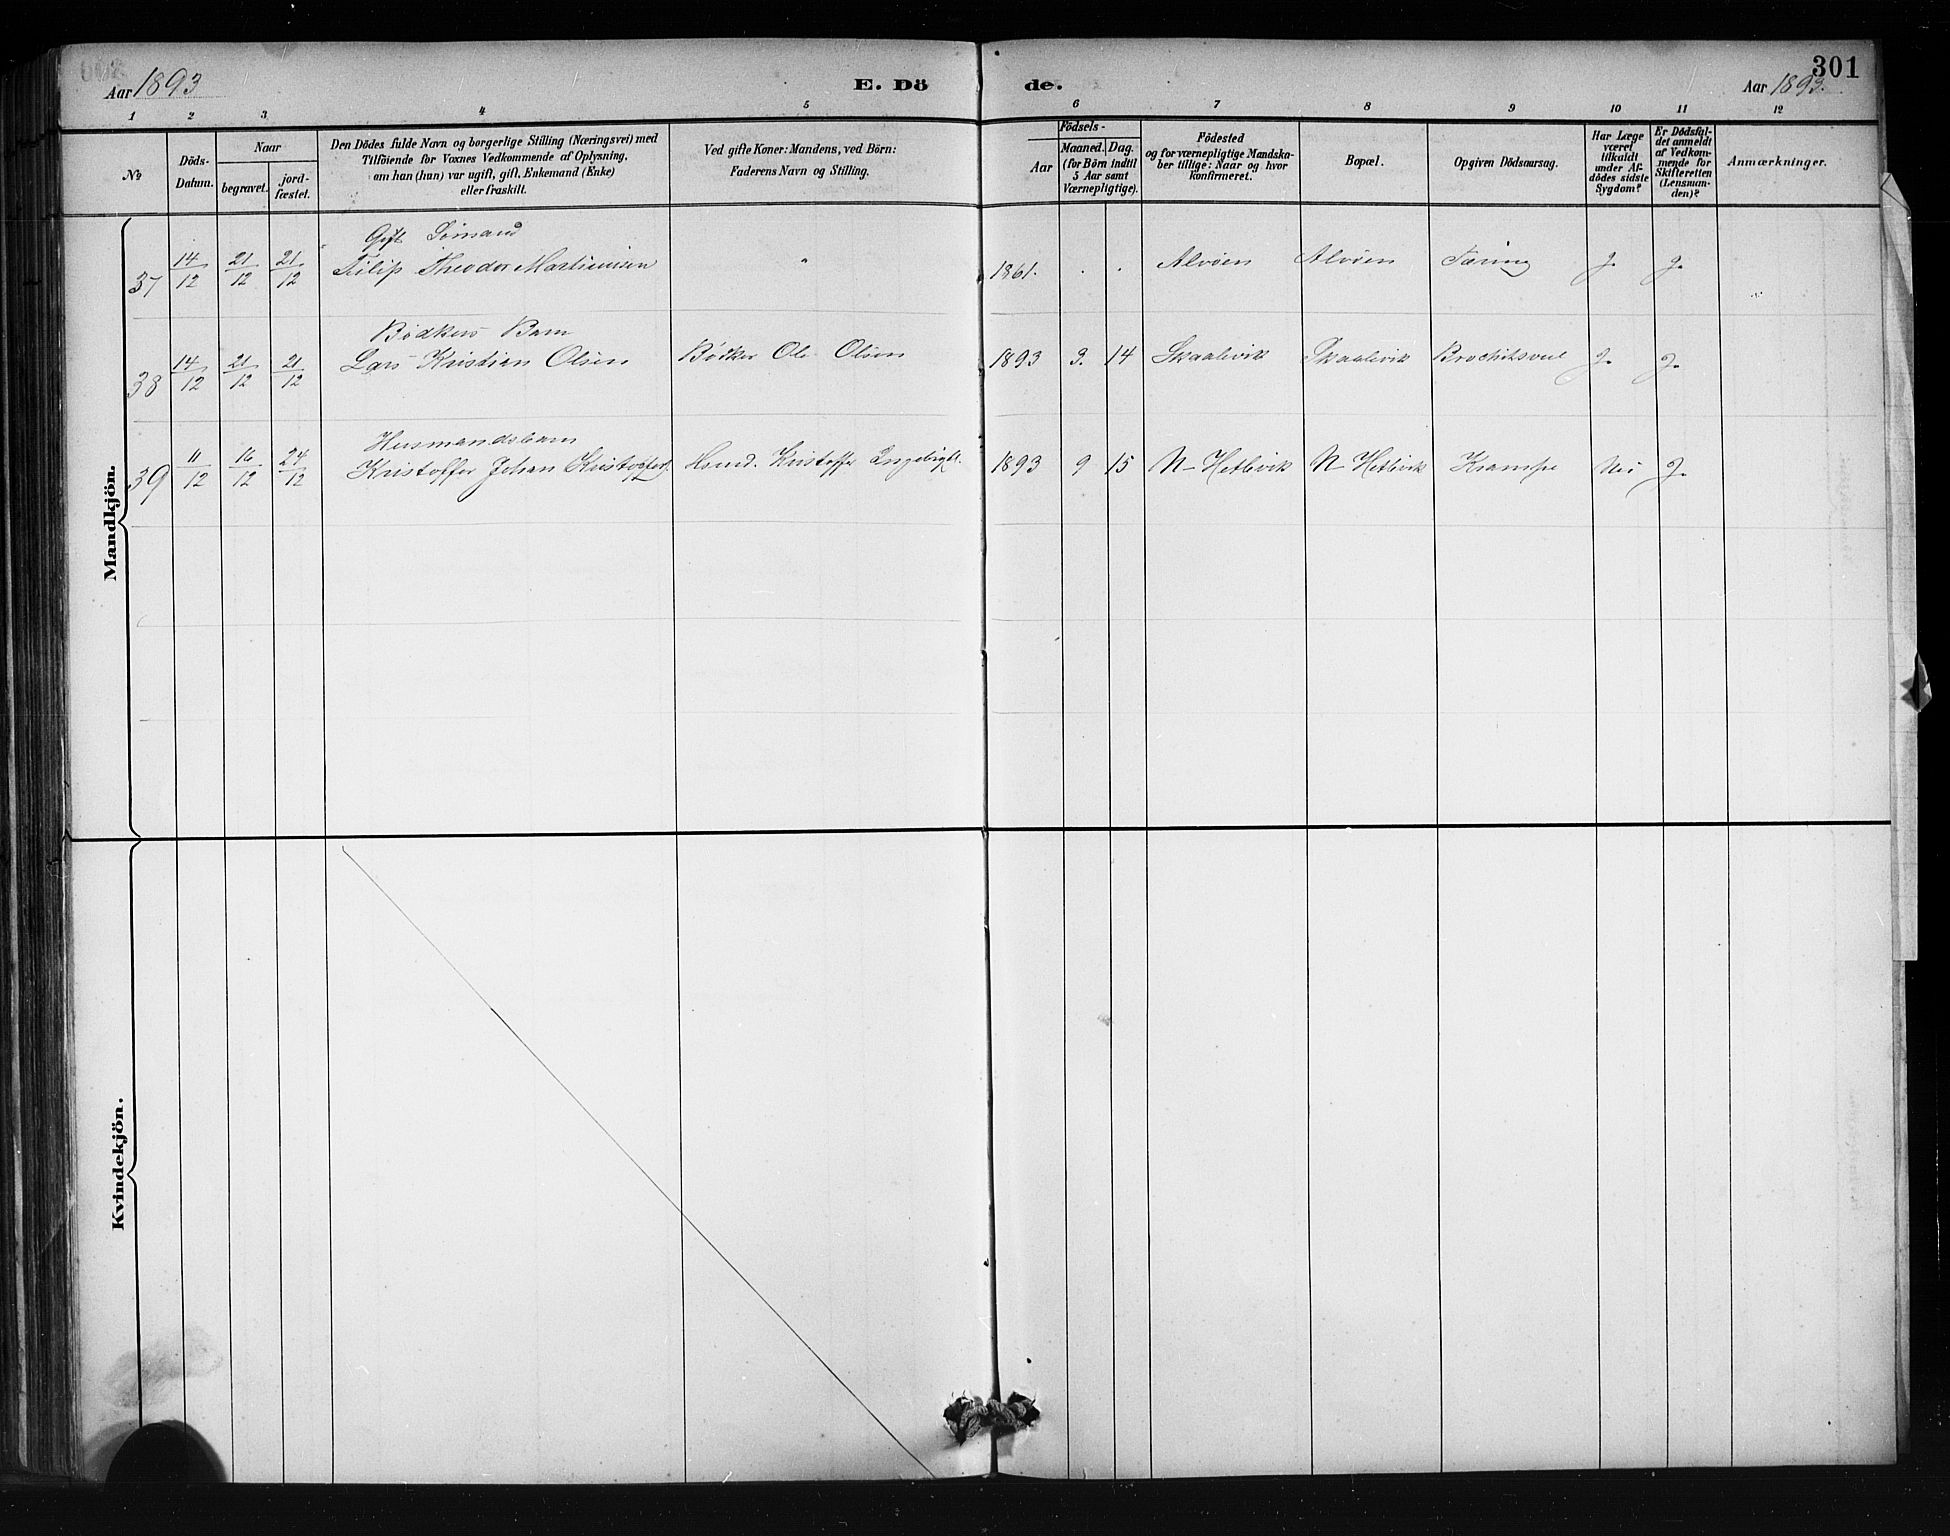 301
Aar 1893
E. Dö
de.
Aar 1893.
1 2 3 4 5 6 7 8 9 10 11 12
No
Döds-
Datum.
Naar
begravet.
jord-
fæstet.
Den Dödes fulde Navn og borgerlige Stilling (Næringsvei) med
Tilföiende for Voxnes Vedkommende af Oplysning,
om han (hun) var ugift, gift, Enkemand (Enke)
eller fraskilt.
Ved gifte Koner: Mandens, ved Börn:
Faderens Navn og Stilling.
Födsels-
Aar
Maaned. Dag.
(for Börn indtil
5 Aar samt
Værnepligtige).
Födested
og for værnepligtige Mandska-
ber tillige: Naar og hvor
konfirmeret.
Bopæl.
Opgiven Dödsaarsag.
Har Læge
været
tilkaldt
under Af-
dödes sidste
Sygdom?
Er Dödsfal-
det anmeldt
af Vedkom-
mende for
Skifteretten
(Lensman-
den)?
Anmærkninger.
Mandkjön.
Gift Sömand
37 14/12 21/12 21/12 Filip Theodor Martinusen " 1861. . . Alvöen Alvöen Tæring J. J.
Bødkers Barn
38 14/12 21/12 21/12 Lars Kristian Olsen Bødker Ole Olsen 1893 3. 14 Skaalevik Skaalevik J. J.
Husmandsbarn
39 11/12 16/12 24/12 Kristoffer Johan Kristoffers. Husmd. Kristoffer Ingebrigt. 1893 9 15 N- Hetlevik N- Hetlevik Krampe Nei J.
Kvindekjön.